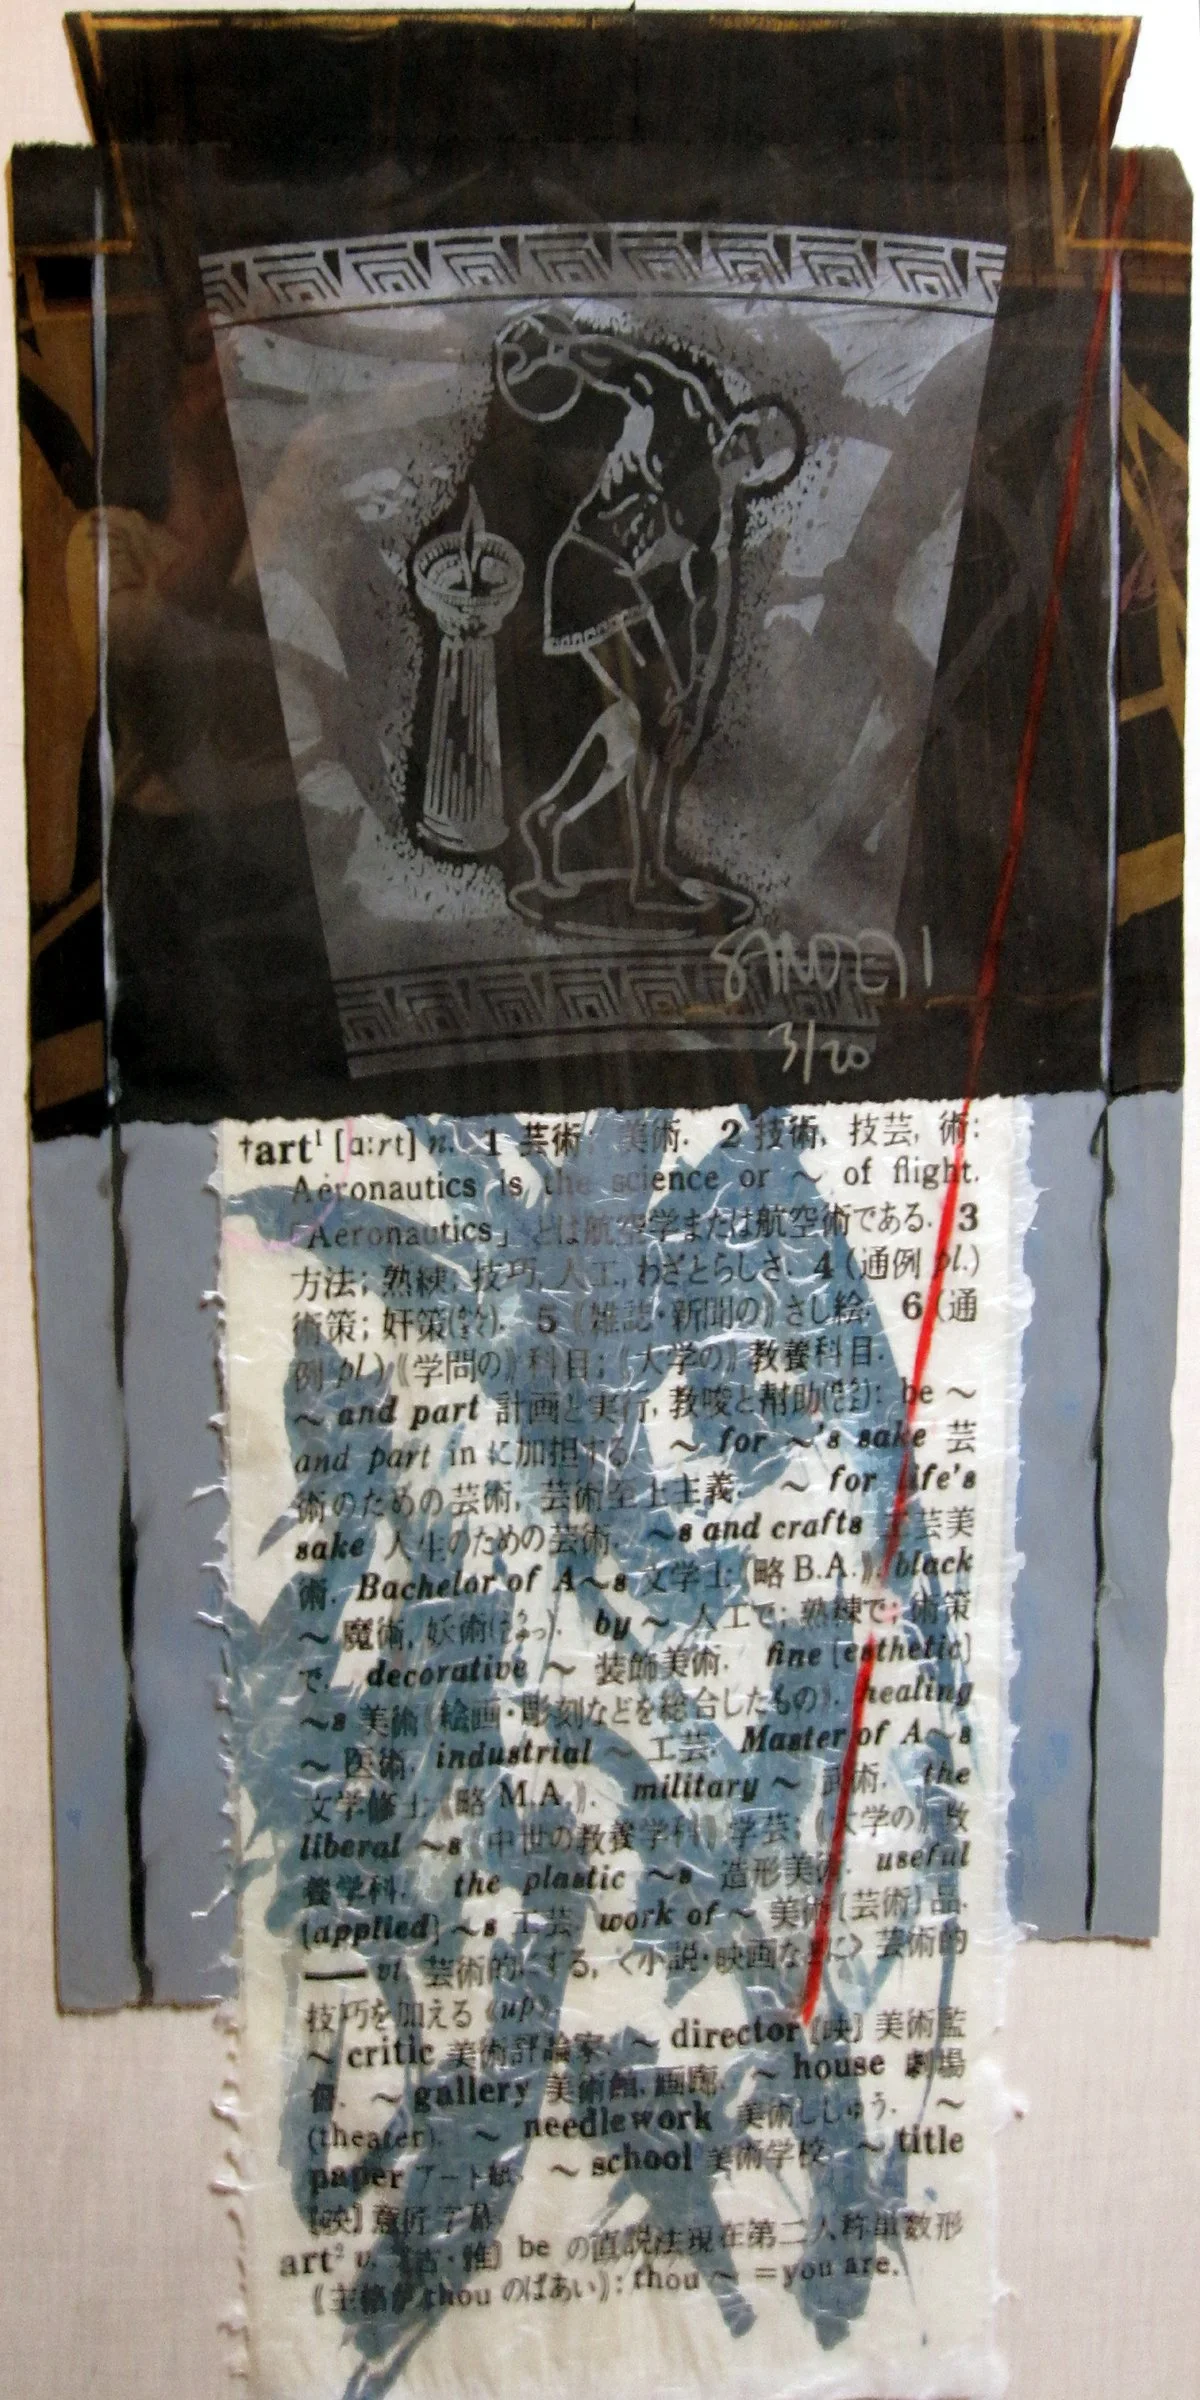 SANDZAI
3/20
†art¹ [ɑːrt] n. 1 芸術; 美術. 2 技術, 技芸, 術:
Aeronautics is the science or ～ of flight.
「Aeronautics」とは航空学または航空術である. 3
方法; 熟練; 技巧, 人工, わざとらしさ. 4 (通例 pl.)
術策; 奸策(かんさく). 5 《雑誌・新聞の》さし絵. 6 (通
例 pl.)《学問の》科目; 《大学の》教養科目.
～ and part 計画と実行, 教唆と幇助(ほうじょ): be ～
and part in に加担する. ～ for ～'s sake 芸
術のための芸術, 芸術至上主義. ～ for life's
sake 人生のための芸術. ～s and crafts 工芸美
術. Bachelor of A～s 文学士《略 B.A.》. black
～ 魔術, 妖術(ようじゅつ). by ～ 人工で; 熟練で; 術策
で. decorative ～ 装飾美術. fine [esthetic]
～s 美術《絵画・彫刻などを総合したもの》. healing
～ 医術. industrial ～ 工芸. Master of A～s
文学修士《略 M.A.》. military ～ 武術. the
liberal ～s 《中世の教養学科》学芸; 《大学の》教
養学科. the plastic ～s 造形美術. useful
[applied] ～s 工芸. work of ～ 美術[芸術]品.
— vt. 芸術的にする, 〈小説・映画などに〉芸術的
技巧を加える《up》.
～ critic 美術評論家. ～ director [映] 美術監
督. ～ gallery 美術館, 画廊. ～ house 劇場
(theater). ～ needlework 美術ししゅう. ～
paper アート紙. ～ school 美術学校. ～ title
[映] 意匠字幕.
art² v. [古・雅] be の直説法現在第二人称単数形
《主格が thou のばあい》: thou ～ =you are.